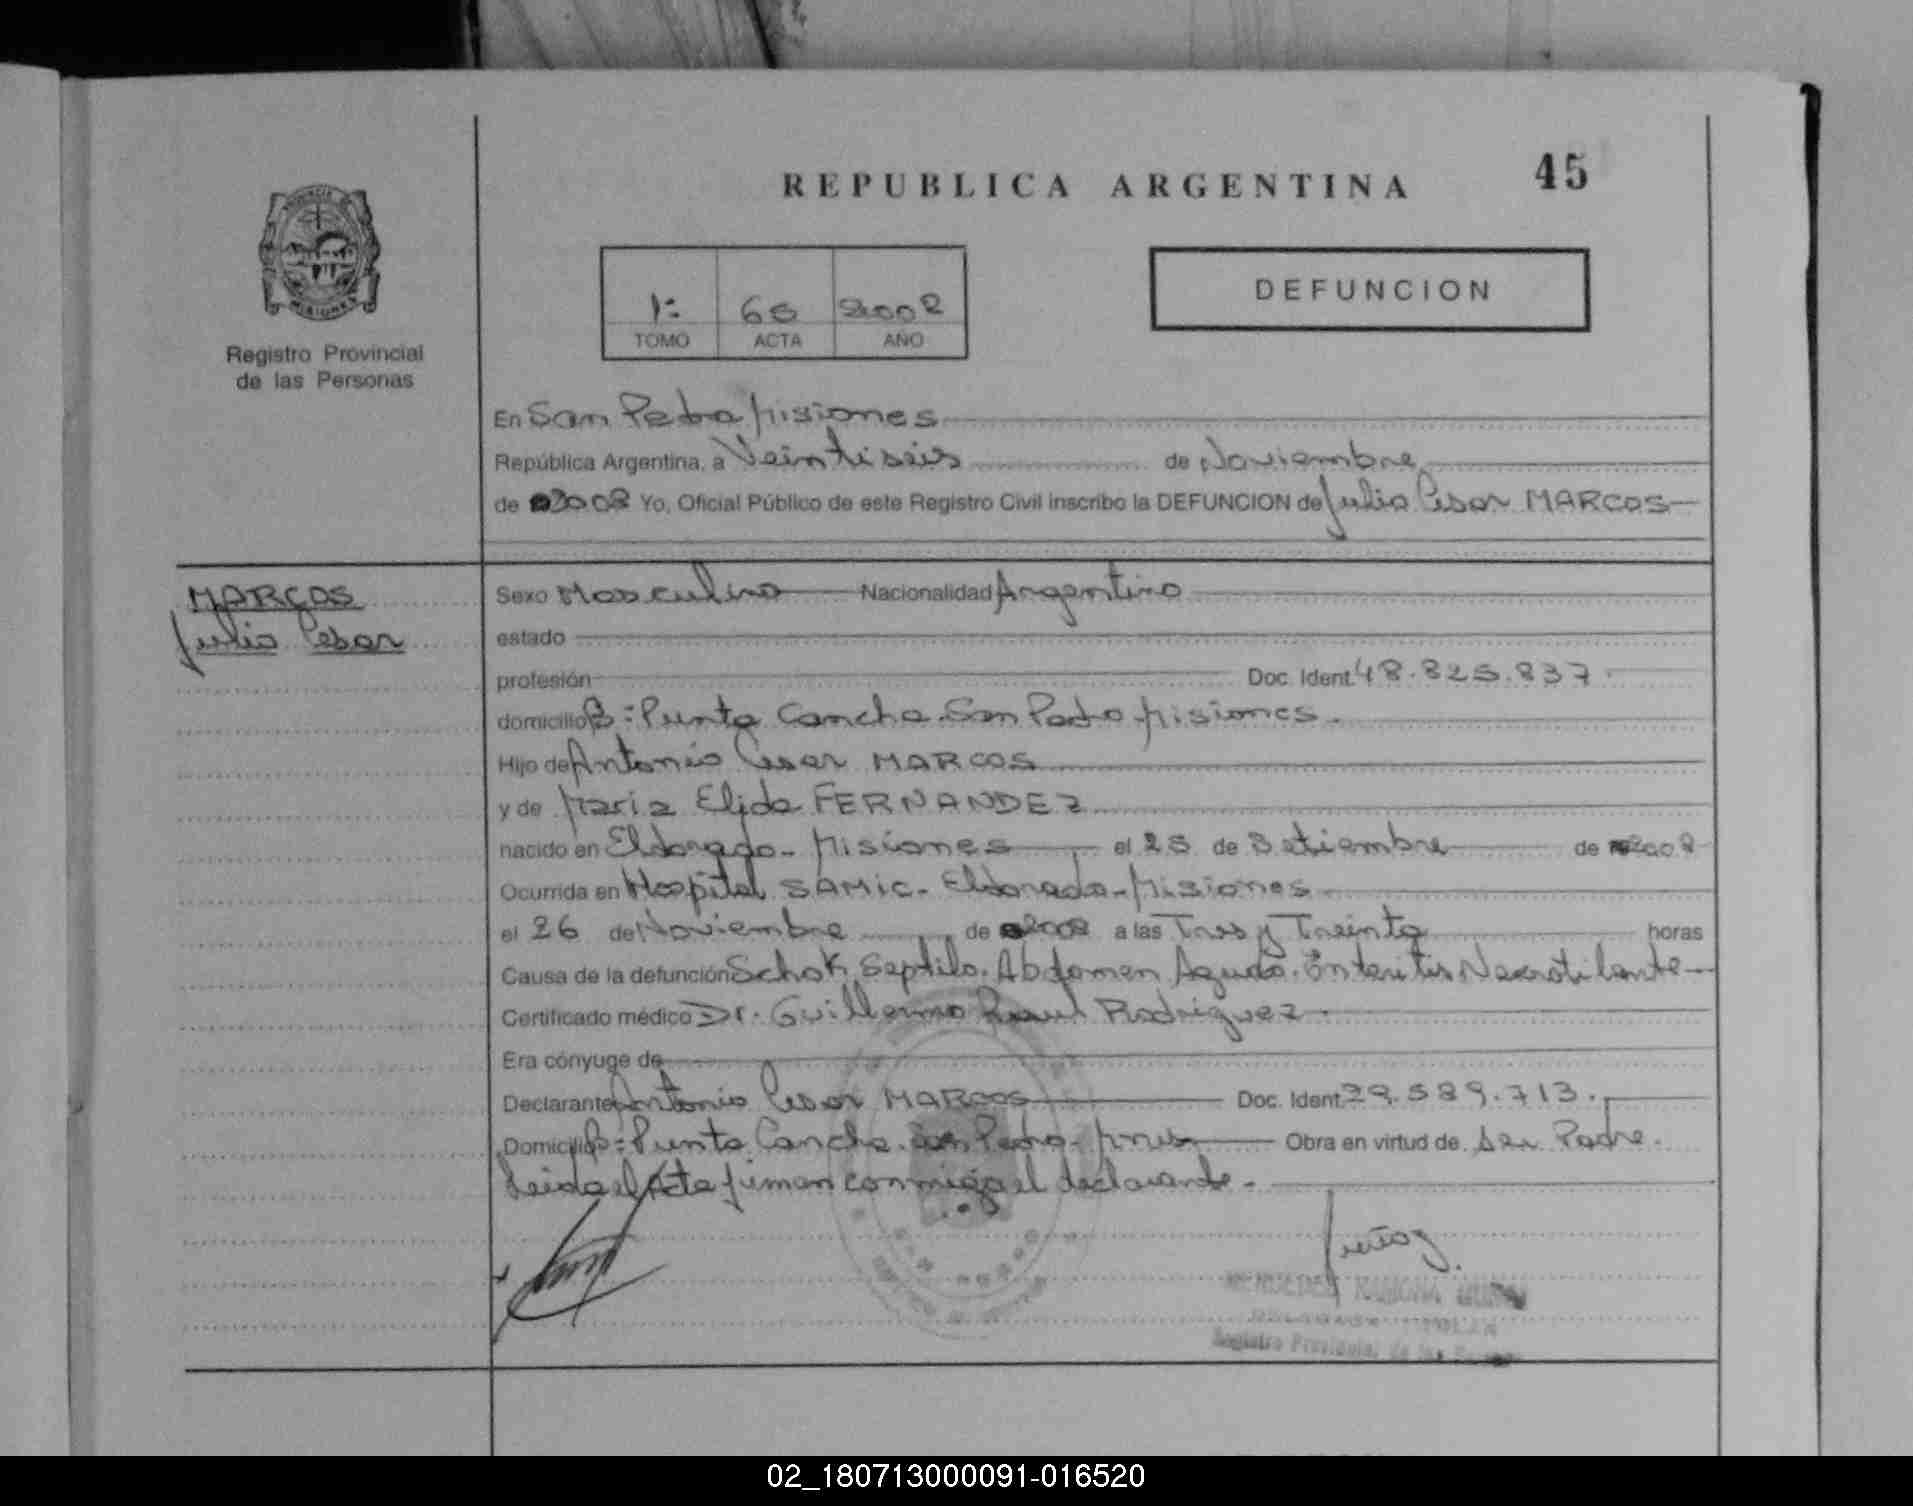 REPUBLICA ARGENTINA
45
PROVINCIA DE
MISIONES
Registro Provincial
de las Personas
1: 65 2008
TOMO ACTA AÑO
DEFUNCION
En San Pedro Misiones
República Argentina, a Veintiseis de Noviembre
de 2008 Yo, Oficial Público de este Registro Civil inscribo la DEFUNCION de Julio Cesar MARCOS
MARCOS
Julio Cesar
Sexo Masculino Nacionalidad Argentino
estado
profesión Doc. Ident. 48.825.837.
domicilio B: Punta Cancha. San Pedro Misiones.
Hijo de Antonio Cesar MARCOS
y de Maria Elida FERNANDEZ
nacido en Eldorado - Misiones el 25 de Setiembre de 2008
Ocurrida en Hospital SAMIC. Eldorado - Misiones
el 26 de Noviembre de 2008 a las Tres y Treinta horas
Causa de la defunción Schok Septilo. Abdomen Agudo. Enteritis Necrotilante
Certificado médico Dr. Guillermo Raul Rodriguez.
Era cónyuge de
Declarante Antonio Cesar MARCOS Doc. Ident. 29.589.713.
Domicilio B: Punta Cancha. San Pedro - Mnes Obra en virtud de ser Padre.
Leida el Acta firman conmigo el declarante.
Muñoz
MERCEDES RAMONA MUÑOZ
Registro Provincial de las Personas
02_180713000091-016520